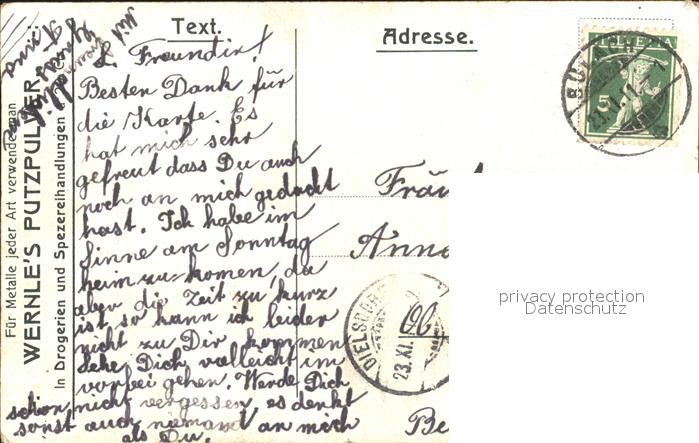 Text.
Adresse.
L. Freundin!
Besten Dank für
die Karte. Es
hat mich sehr
gefreut dass Du auch
noch an mich gedacht
hast. Ich habe im
Sinne am Sonntag
heim zu komen, da
aber die Zeit zu kurz
ist so kann ich leider
nicht zu Dir kommen
sehe Dich vielleicht im
vorbei gehen. Werde Dich
schon nicht vergessen, es denkt
sonst auch niemand an mich
als Du.
Mit
Gruss
Für Metalle jeder Art verwende man
WERNLE'S PUTZPULVER
In Drogerien und Spezereihandlungen
HELVETIA
5
BÜLACH
23.XI.11.
Anna
DIELSDORF
23.XI.
privacy protection
Datenschutz
Be